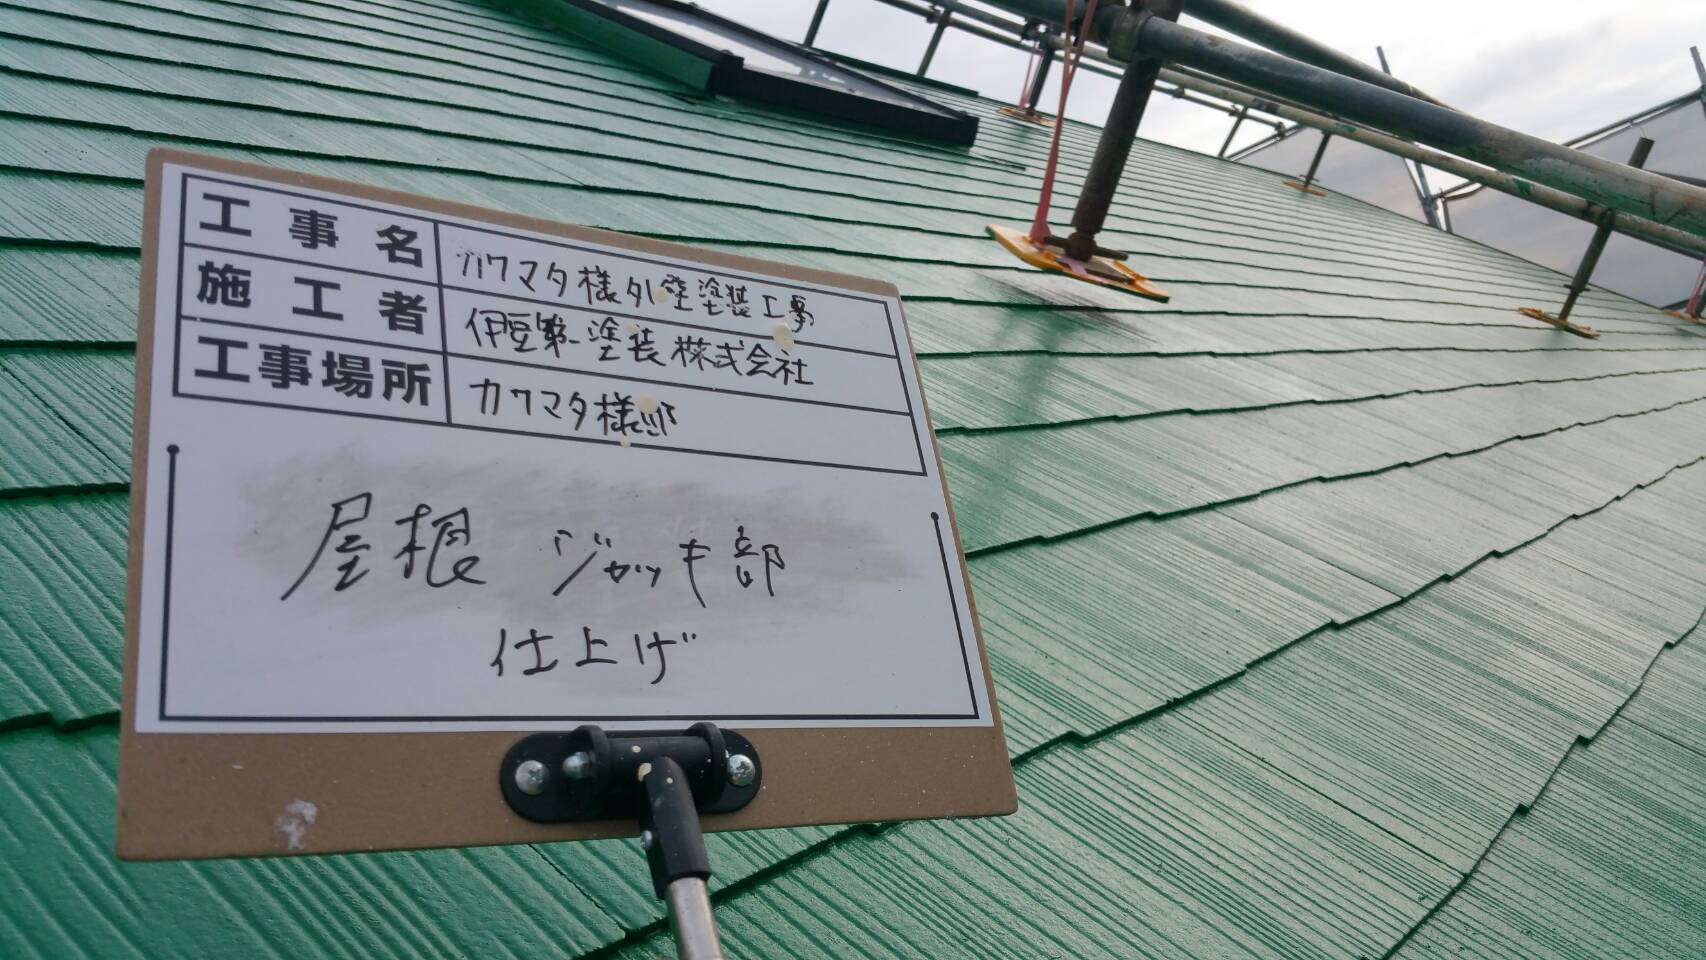 工事名 カワマタ様外壁塗装工事
施工者 伊豆第一塗装株式会社
工事場所 カワマタ様邸
屋根 ジャッキ部
仕上げ